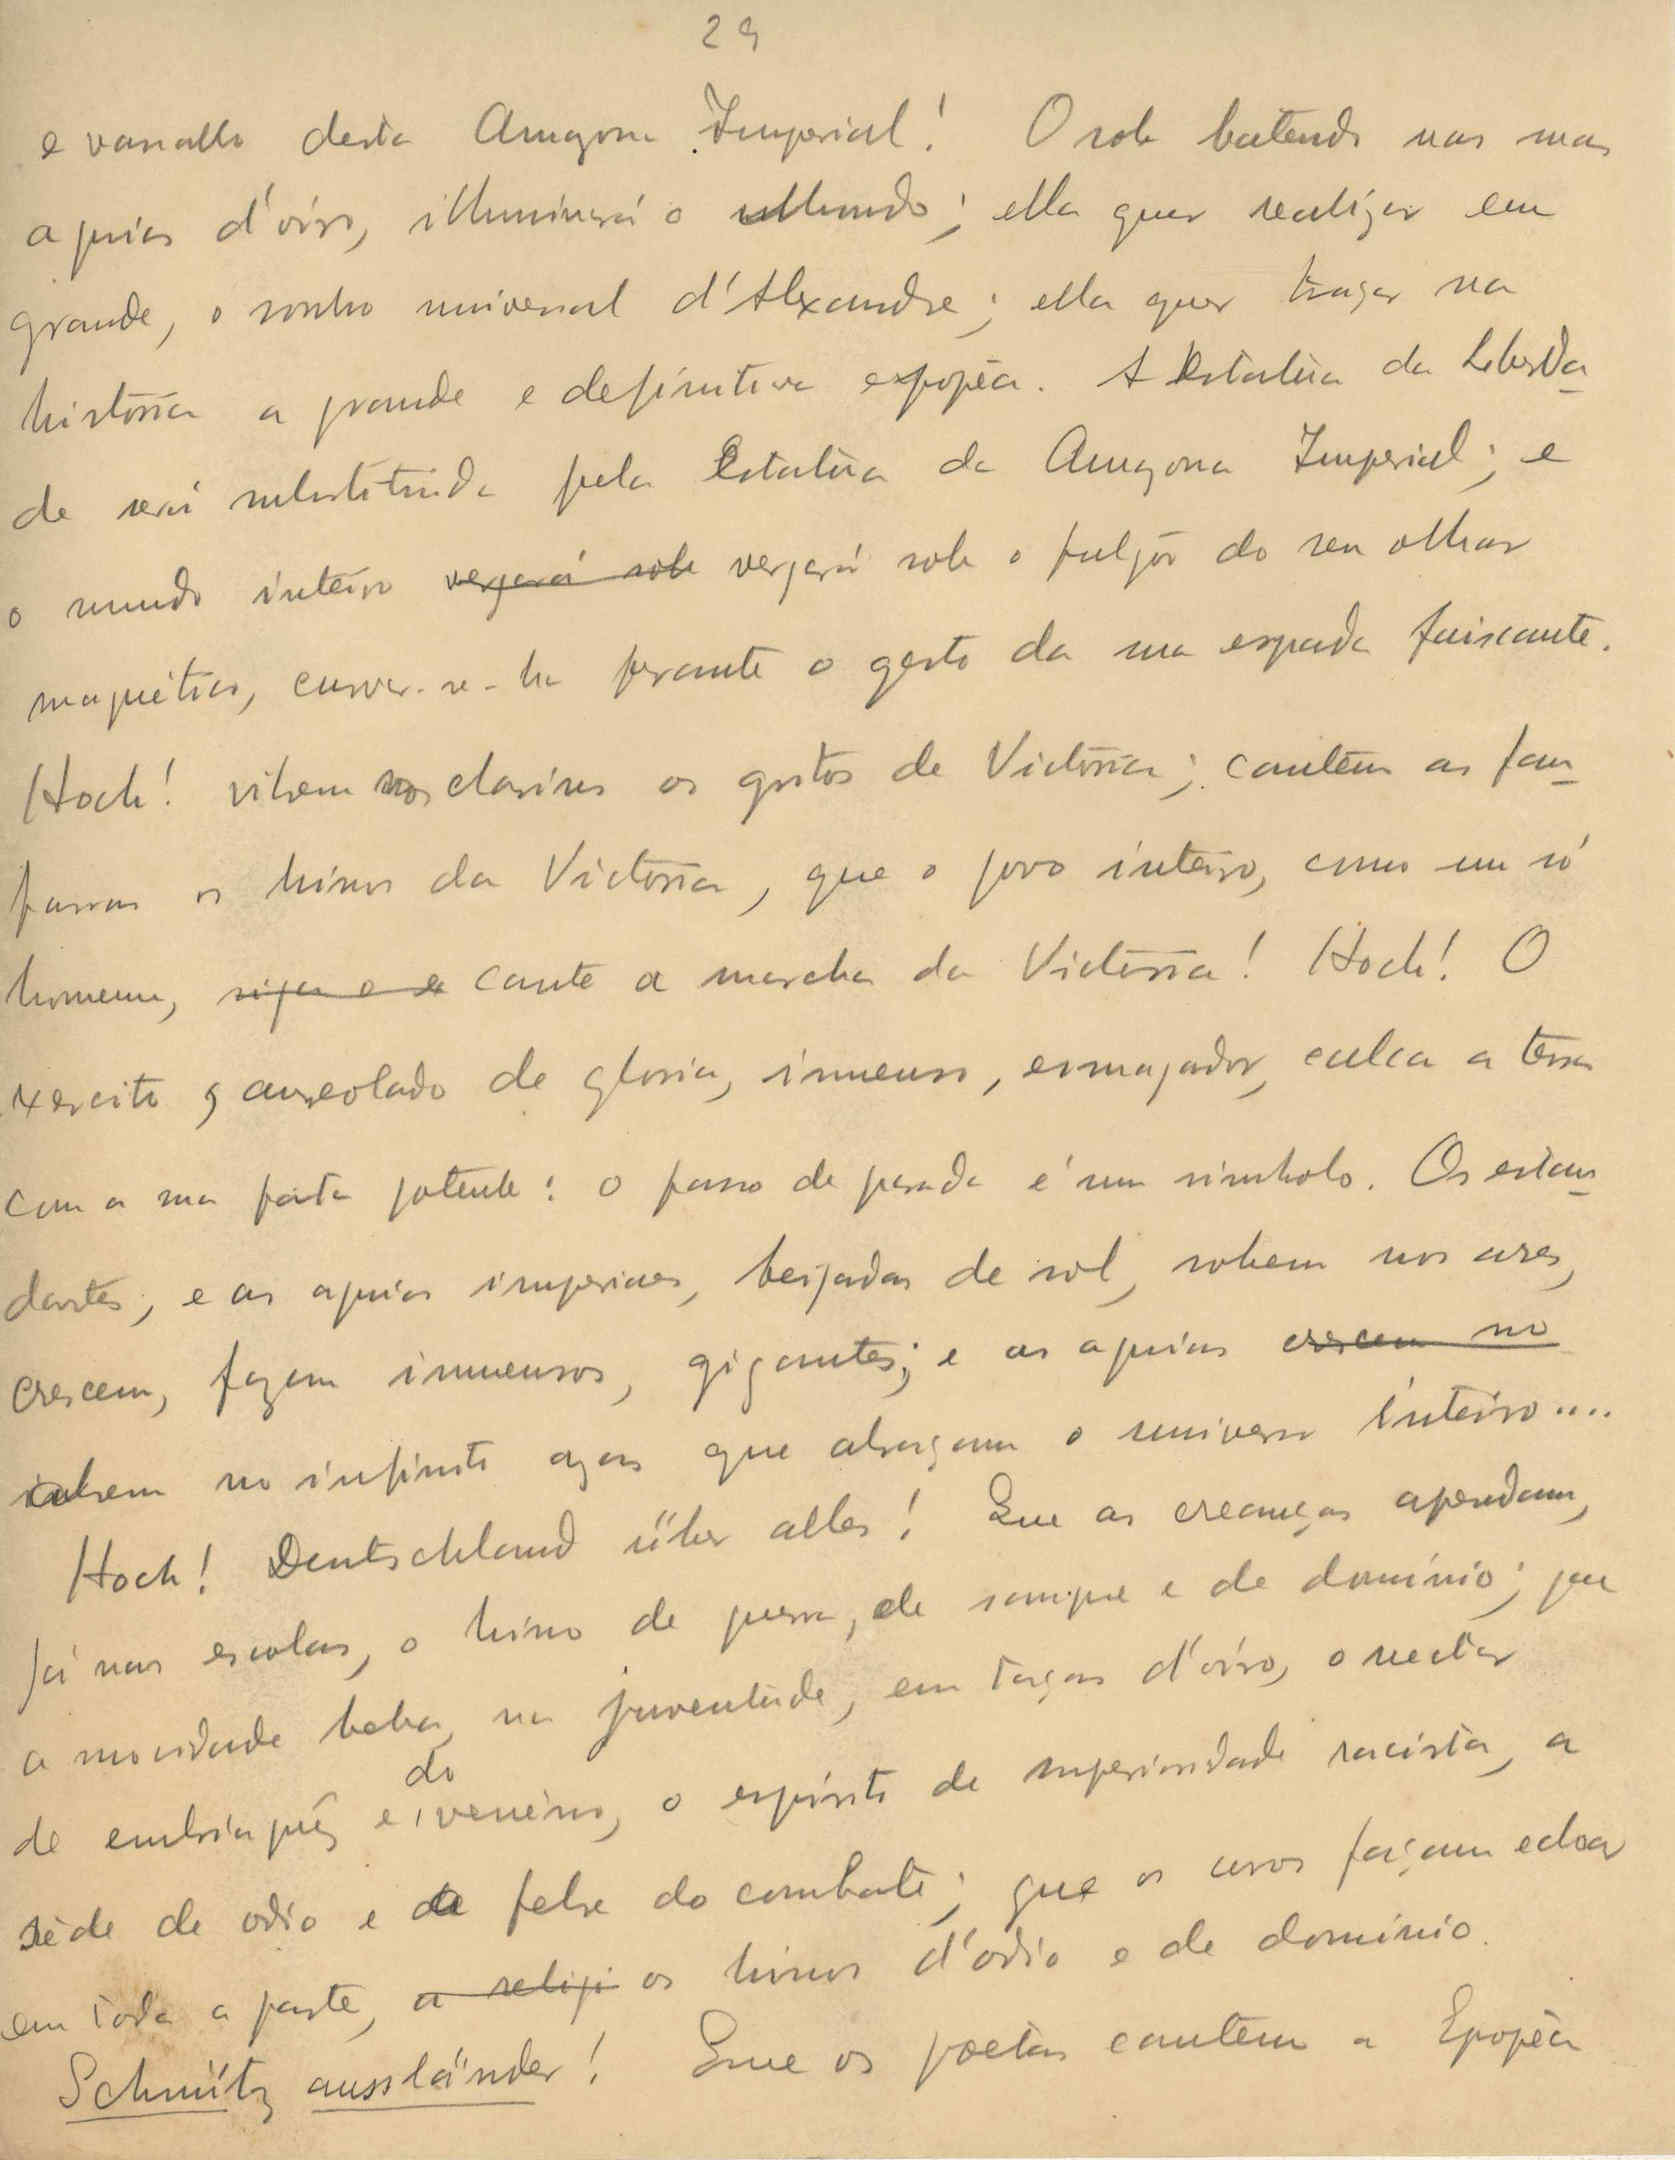 29
e vassallo desta Amazona Imperial! O sol batendo nas suas
aguias d'oiro, illuminará o Mundo; ella quer realizar em
grande, o sonho universal d'Alexandre; ella quer traçar na
história a grande e definitiva epopêa. A Estatúa da Liberda-
de será substituida pela Estatúa da Amazona Imperial; e
o mundo inteiro vergará sob vergará sob o fulgôr do seu olhar
magnético, curvar-se-ha perante o gesto da sua espada faiscante.
Hoch! vibrem nos clarins os gritos de Victória; cantem as fan-
farras os hinos da Victória, que o povo inteiro, como um só
homem, siga e e cante a marcha da Victória! Hoch! O
exercito, aureolado de gloria, immenso, esmagador, calca a terra
com a sua pata potente: o passo de parada é um simbolo. Os estan-
dartes, e as aguias imperiaes, beijadas de sol, sobem nos ares,
crescem, fazem immensos, gigantes; e as aguias crescem no
abrem no infinito azas que abraçam o universo inteiro....
Hoch! Deutschland über alles! Que as creanças aprendam,
já nas escolas, o hino de guerra, de sangue e de domínio; que
a mocidade beba, na juventude, em taças d'oiro, o nectar
de embriaguêz e do venêno, o espírito de superioridade racista, a
sêde de odio e a febre do combate; que os coros façam echoar
em toda a parte, a religi os hinos d'odio e de domínio.
Schmütz aussländer! Que os poetas cantem a Epopêa